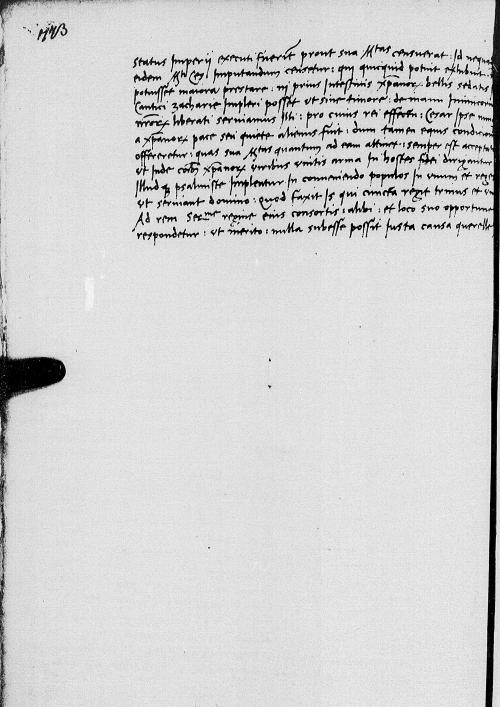 1173
status Imperii executi fuerint prout sua Mtas censuerat : Id neque
eidem Mti Ces Imputandum censetur : qui quicquid potuit exhibuit :
potuisset maiora prestare : ni prius Intestinis xpanorx bellis sedatis
Cantici zacharie Impleri posset ut sine timore : de manu Inimicorum
nrorx liberati seruiamus Illi : pro cuius rei effectu : Cesar Ipse num
a xpanorx pace seu quiete alienus fuit : dum tamen equs condicion
offereretur : quas sua Mtas quantum ad eam attinet : semper est acceptat
ut Inde coibus xpanorx viribus unitis arma In hostes fidei dirigantur
Illud qz psalmiste Impleatur In conueniendo populos In unum et reges
ut seruiant domino : quod faxit Is qui cuncta regit terminus et
Ad rem serme regine eius consortis : alibi : et loco suo opportune
respondetur : ut merito : nulla subesse possit Iusta causa querelle